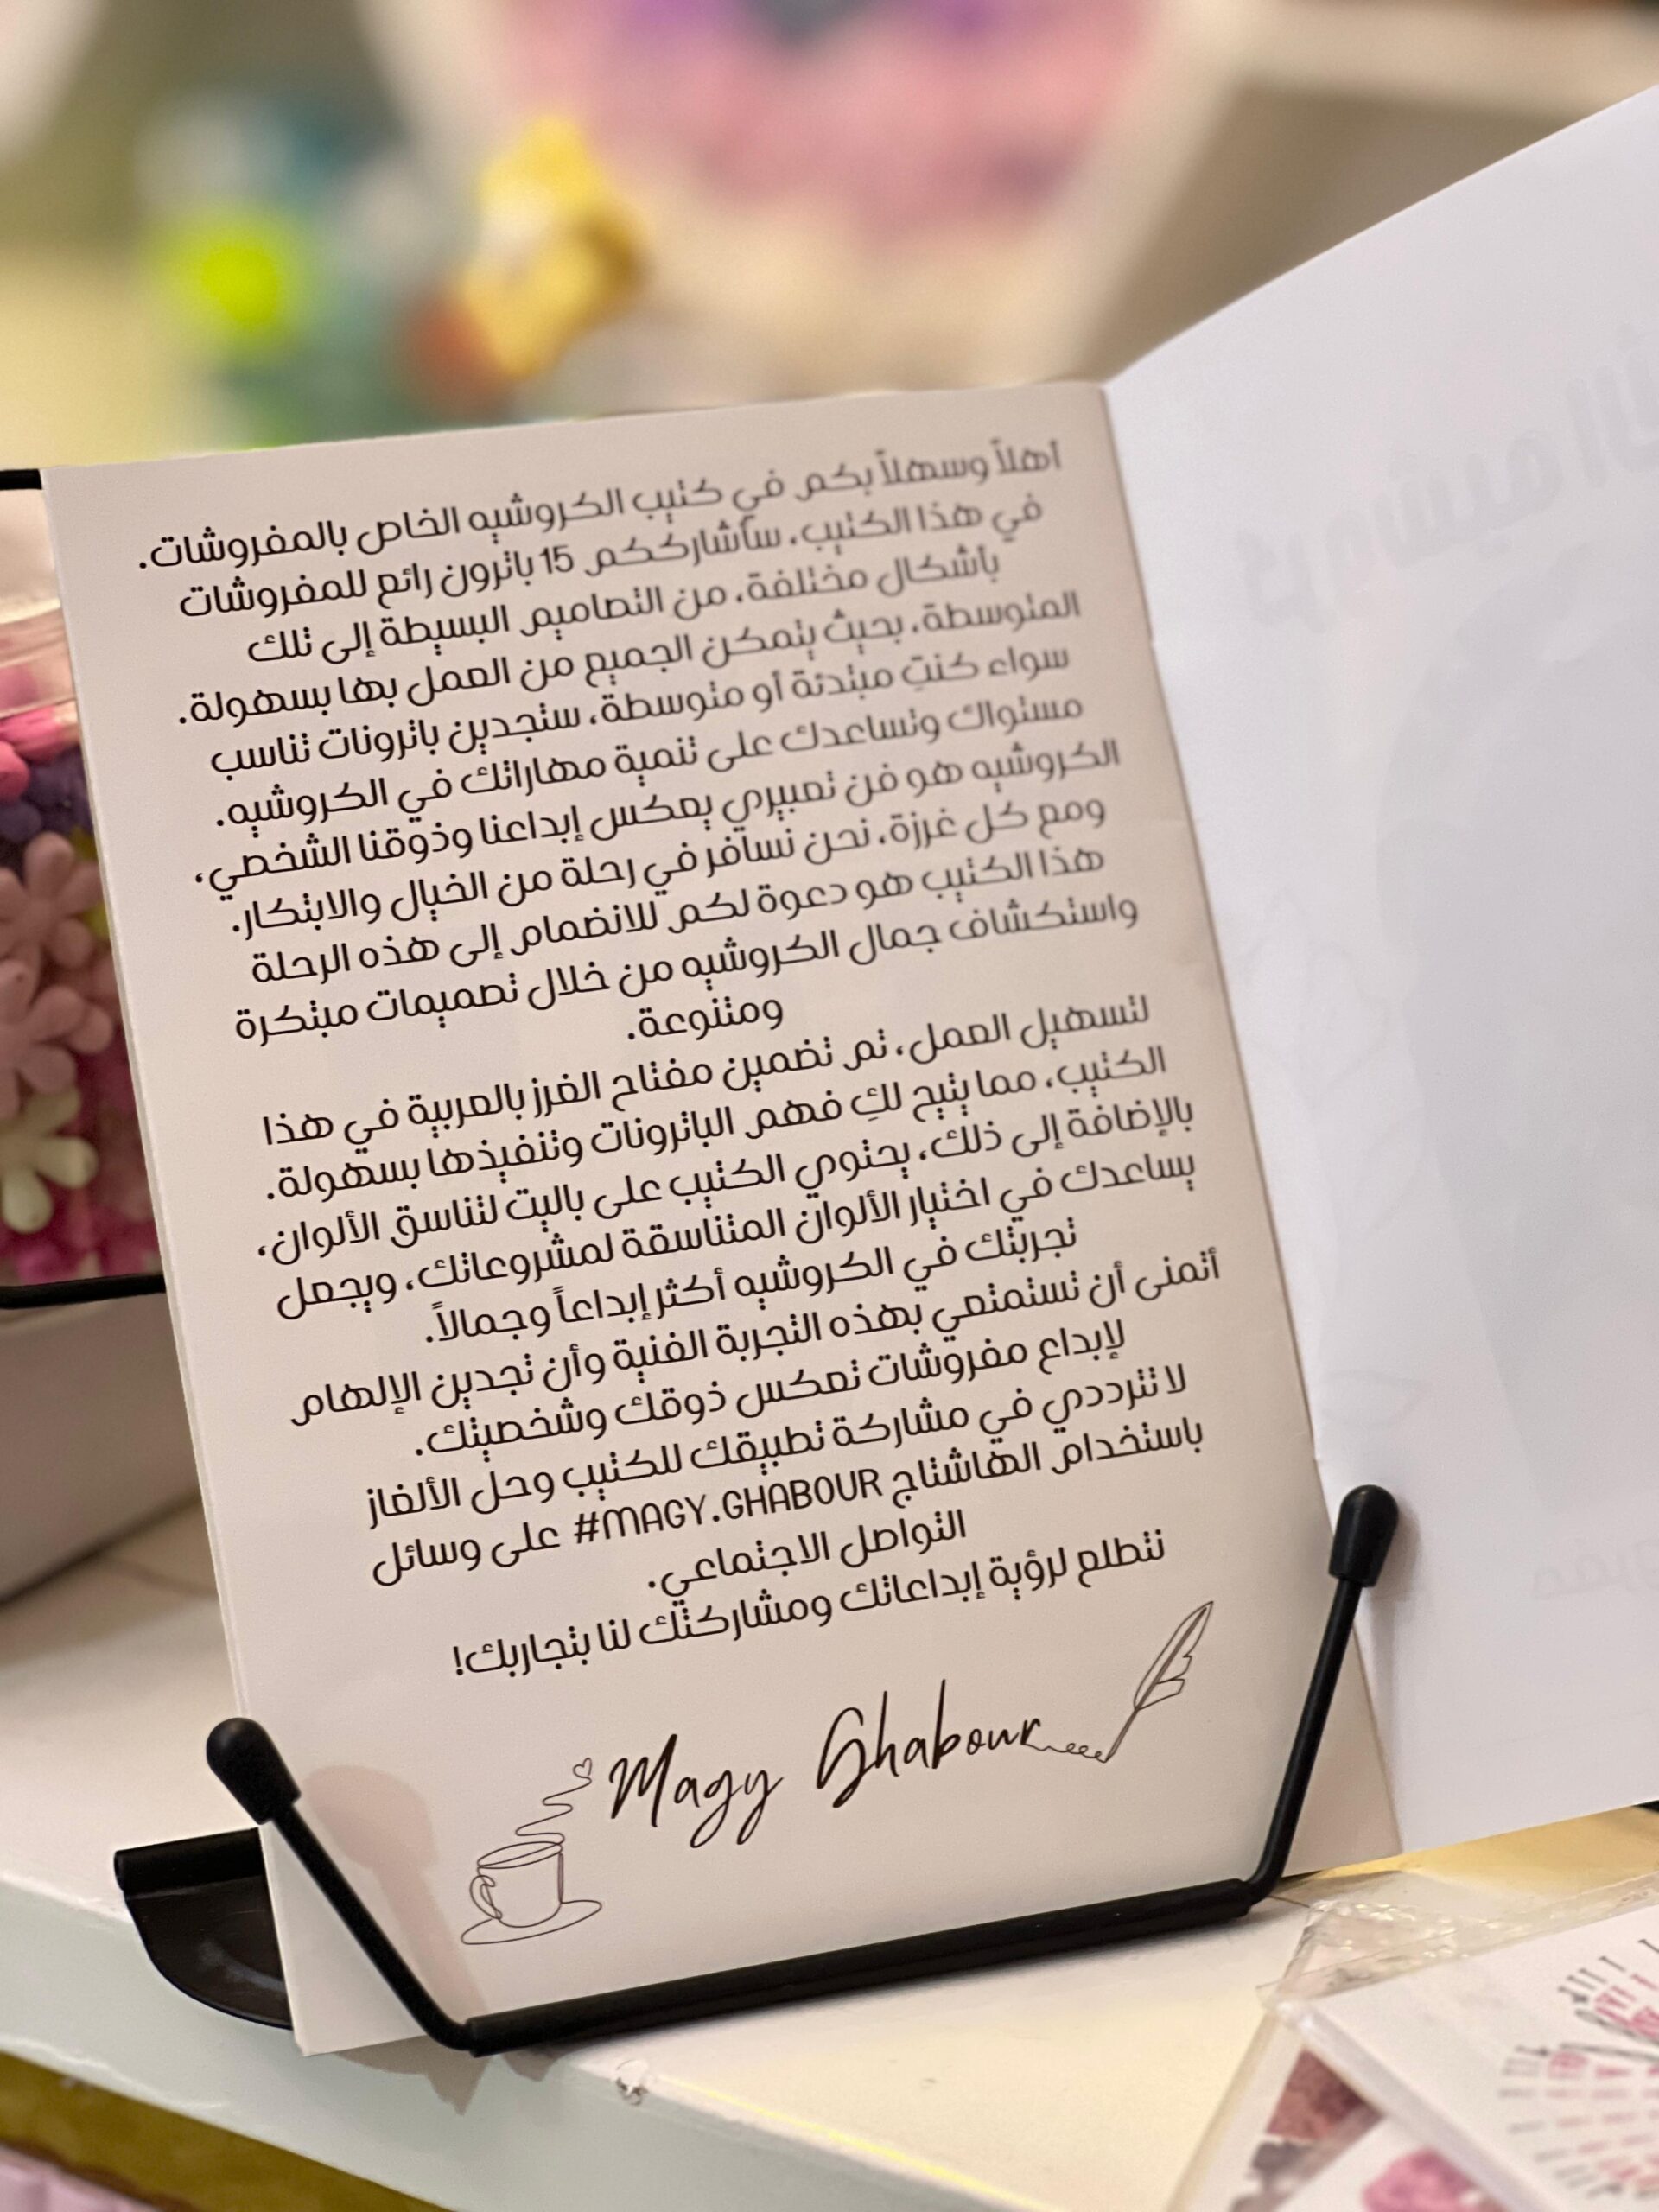 أهلاً وسهلاً بكم في كتيب الكروشيه الخاص بالمفروشات.
في هذا الكتيب، سأشارككم 15 باترون رائع للمفروشات
بأشكال مختلفة، من التصاميم البسيطة إلى تلك
المتوسطة، بحيث يتمكن الجميع من العمل بها بسهولة.
سواء كنتِ مبتدئة أو متوسطة، ستجدين باترونات تناسب
مستواك وتساعدك على تنمية مهاراتك في الكروشيه.
الكروشيه هو فن تعبيري يعكس إبداعنا وذوقنا الشخصي،
ومع كل غرزة، نحن نسافر في رحلة من الخيال والابتكار.
هذا الكتيب هو دعوة لكم للانضمام إلى هذه الرحلة
واستكشاف جمال الكروشيه من خلال تصميمات مبتكرة
ومتنوعة.
لتسهيل العمل، تم تضمين مفتاح الغرز بالعربية في هذا
الكتيب، مما يتيح لكِ فهم الباترونات وتنفيذها بسهولة.
بالإضافة إلى ذلك، يحتوي الكتيب على باليت لتناسق الألوان،
يساعدك في اختيار الألوان المتناسقة لمشروعاتك، ويجعل
تجربتك في الكروشيه أكثر إبداعاً وجمالاً.
أتمنى أن تستمتعي بهذه التجربة الفنية وأن تجدين الإلهام
لإبداع مفروشات تعكس ذوقك وشخصيتك.
لا تترددي في مشاركة تطبيقك للكتيب وحل الألغاز
باستخدام الهاشتاج #MAGY.GHABOUR على وسائل
التواصل الاجتماعي.
نتطلع لرؤية إبداعاتك ومشاركتك لنا بتجاربك!
Magy Ghabour